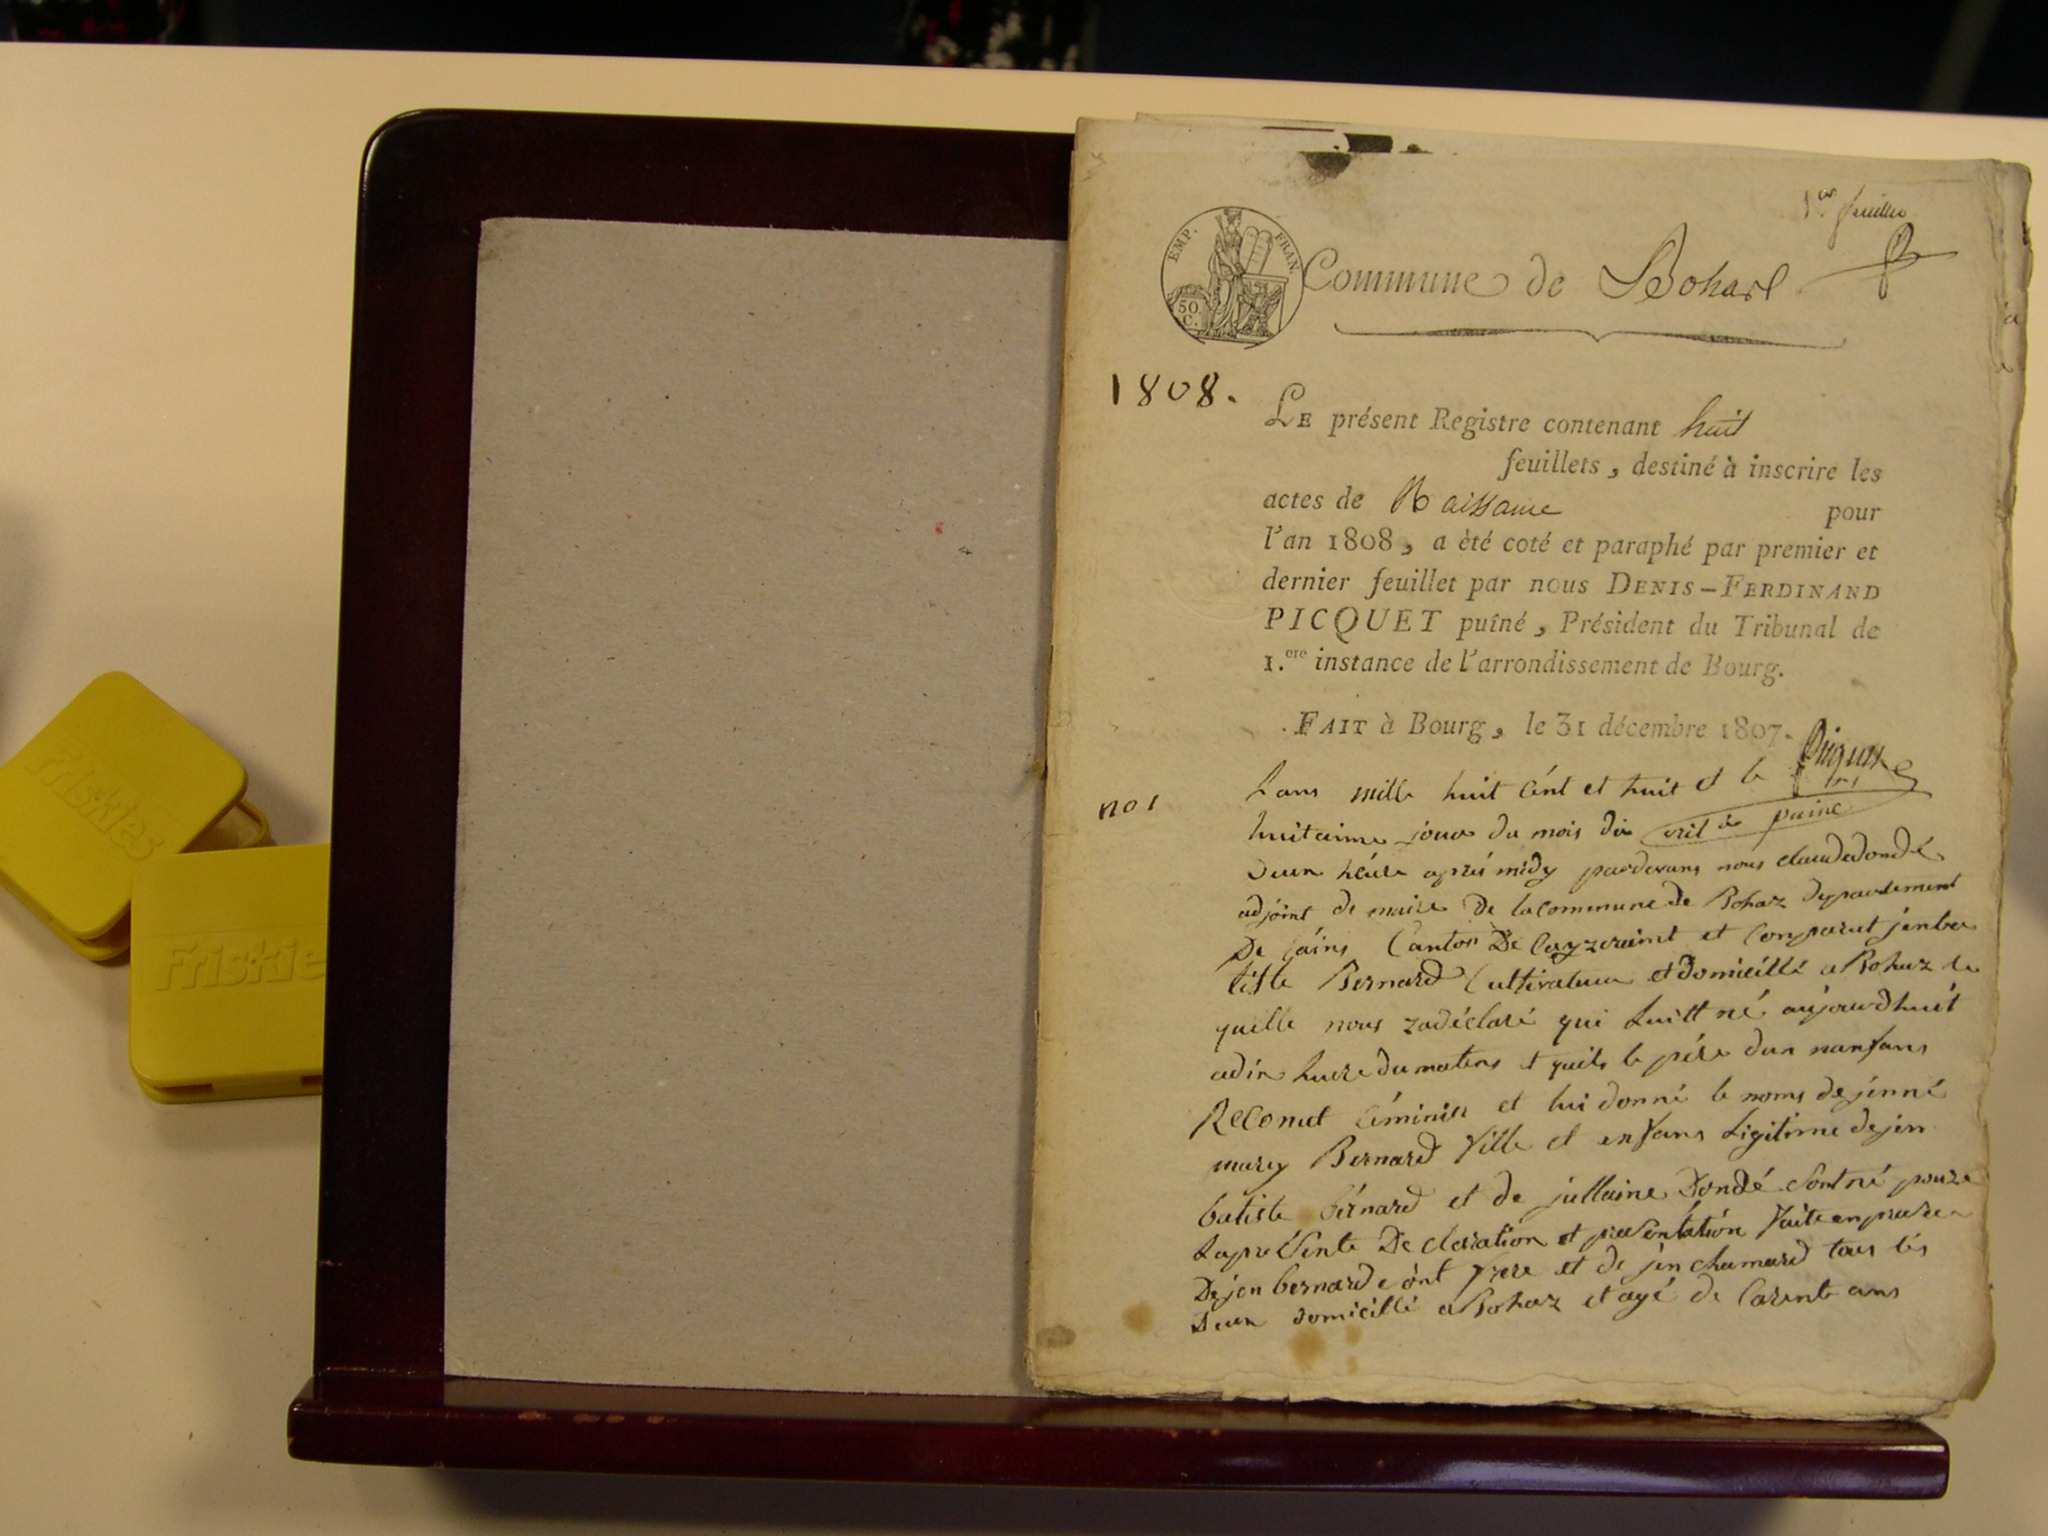 1er feuillet
EMP. FRAN
50
C.
Commune de Bohas
1808.
LE présent Registre contenant huit
feuillets, destiné à inscrire les
actes de Naissance pour
l'an 1808, a été coté et paraphé par premier et
dernier feuillet par nous DENIS-FERDINAND
PICQUET puîné, Président du Tribunal de
1.ere instance de l'arrondissement de Bourg.
FAIT à Bourg, le 31 décembre 1807.
Picquet
puiné
no 1
Lans mille huit cént et huit et le
huitaime jour du mois
deux héure aprés midy pardevans nous claude dondé
adjoint de maire De la commune de Bohaz departement
De l'áins Canton De et Comparut jenba
tiste Bernard Cultivateur et domicillé a Bohaz le
quelle nous zadéclaré qui né aujourdhuit
adix huere du matins et quils le pére dun nanfans
Reconut et lui donné le noms de jénné
marey Bernard fille et enfans Ligitime de jen
batiste bérnard et de jullaine Dondé
Lapresente Declaration et presentátión faite en
De jen bernard frere et de jén chamard tous lés
Deux domicillé a Bohaz et agé de Carente ans
Friskies
Friskie